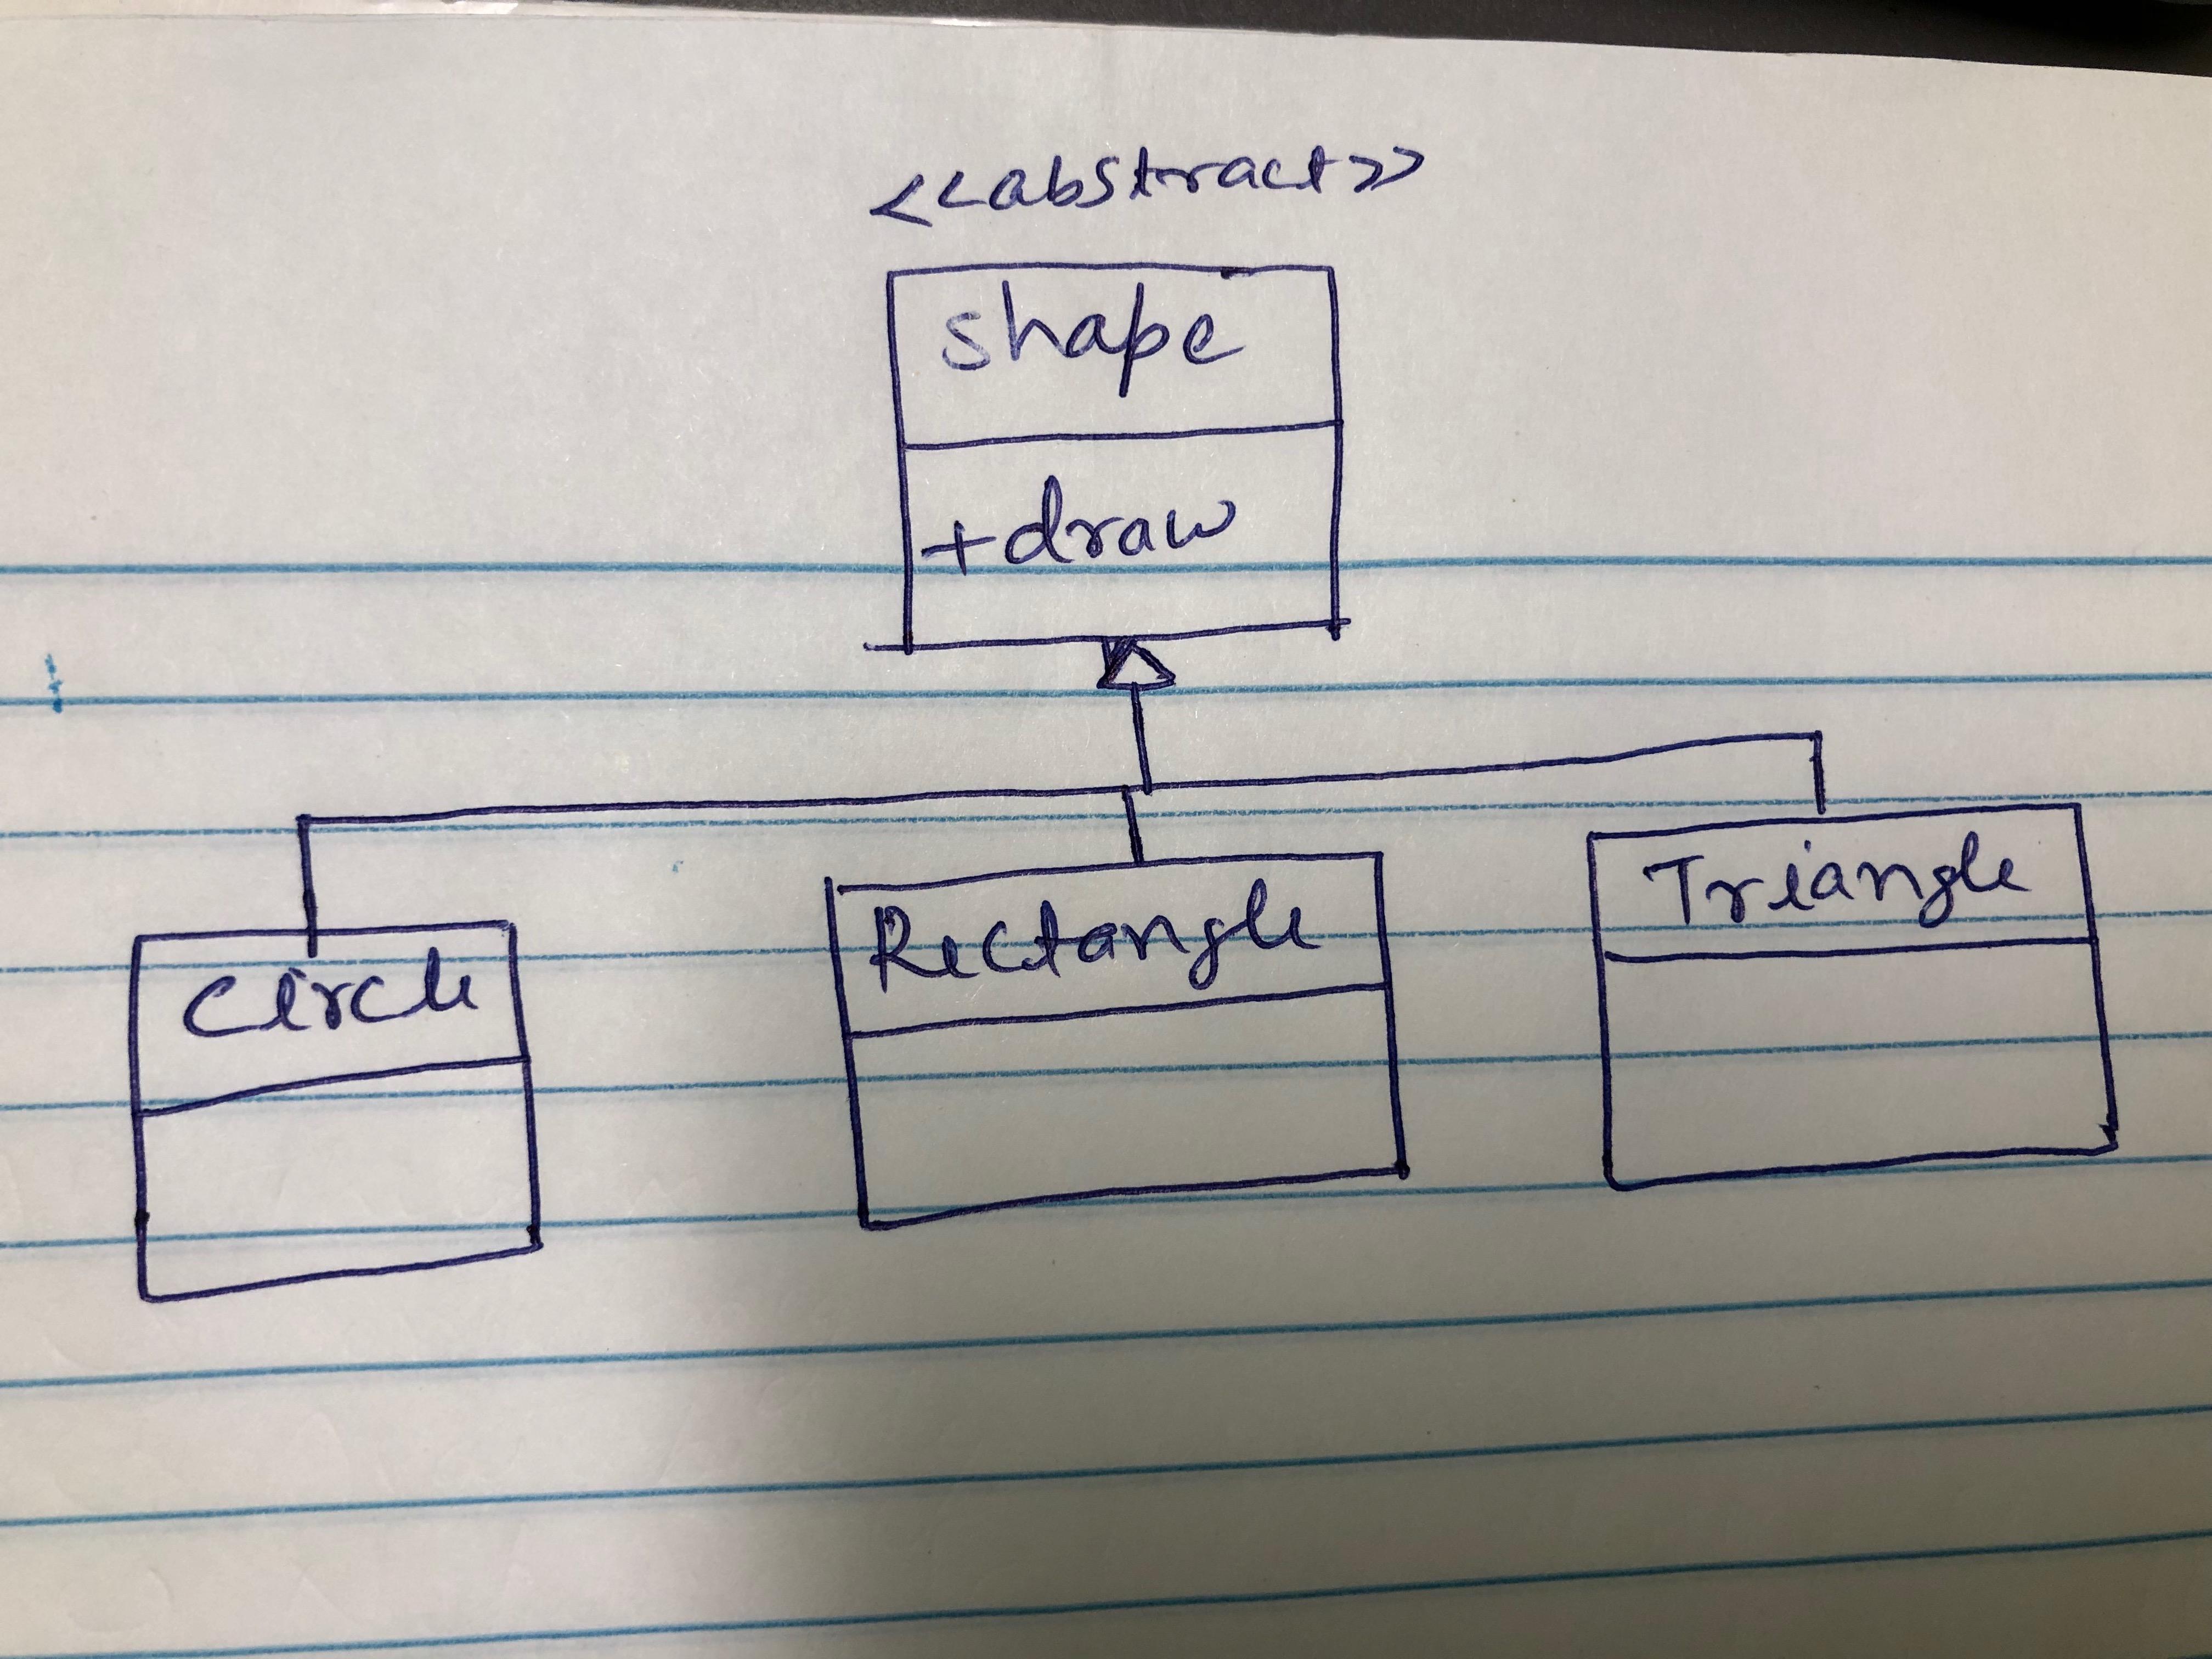 <<abstract>>
shape
+draw
Circle
Rectangle
Triangle